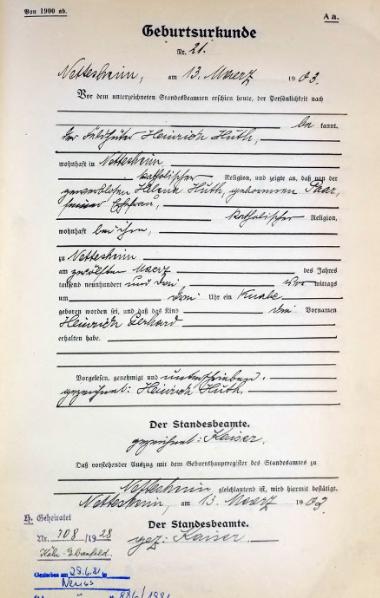 Von 1900 ab.
A a.
Geburtsurkunde
Nr. 21.
Nettesheim, am 13. Maerz 1903.
Vor dem unterzeichneten Standesbeamten erschien heute, der Persönlichkeit nach
be kannt,
der Heinrich Hüth,
wohnhaft in Nettesheim
katholischer Religion, und zeigte an, daß von der
Helena Hüth, geborenen Paar,
seiner Ehefrau, katholischer Religion,
wohnhaft bei ihm,
zu Nettesheim
am zwölften Maerz des Jahres
tausend neunhundert und drei Vor mittags
um drei Uhr ein Knabe
geboren worden sei, und daß das Kind den Vornamen
Heinrich
erhalten habe.
Vorgelesen, genehmigt und unterschrieben.
gezeichnet: Heinrich Hüth.
Der Standesbeamte.
gezeichnet: Kaiser.
Daß vorstehender Auszug mit dem Geburtshauptregister des Standesamtes zu
Nettesheim gleichlautend ist, wird hiermit bestätigt.
Nettesheim, am 13. Maerz 1903
Der Standesbeamte.
gez: Kaiser
H. Geheiratet
Nr. 708/1928
Köln-Ehrenfeld.
Gestorben am
in Neuss